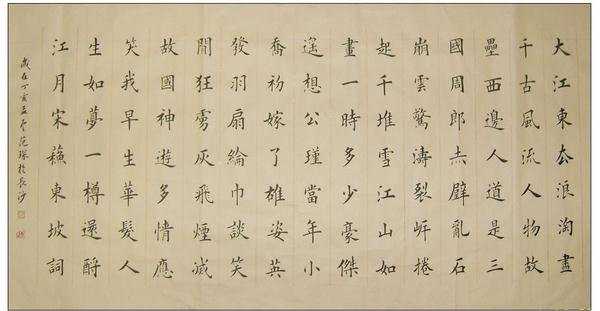 大江東去浪淘盡
千古風流人物故
壘西邊人道是三
國周郎赤壁亂石
崩雲驚濤裂岸捲
起千堆雪江山如
畫一時多少豪傑
遙想公瑾當年小
喬初嫁了雄姿英
發羽扇綸巾談笑
間狂虜灰飛煙滅
故國神遊多情應
笑我早生華髮人
生如夢一樽還酹
江月宋蘇東坡詞
歲在丁亥孟范琛於長沙